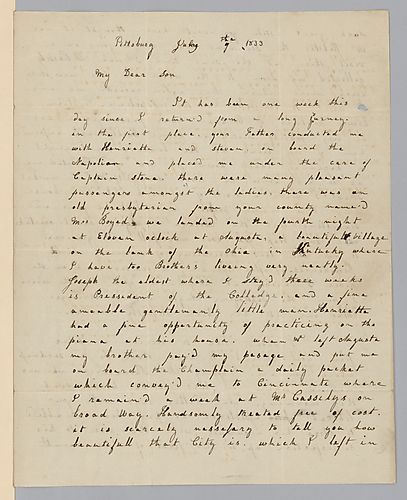 Pittsburg July the 9, 1833
My Dear Son
It has been one week this
day since I return'd from a long Jurney.
in the first place, your Father conducted me
with Henriette and stevan, on board the
Napolian and placed me under the care of
Captain stone. there were many pleasant
passengers amongst the ladies, there was an
old presbyterian from your county named
Mrs Boyed. we landed on the fourth night
at Eleven oclock at Augusta, a beautifull village
on the bank of the Ohio, in Kentucky where
I have too Brothers liveing very neatly.
Joseph the eldest where I stay'd three weeks
is Pressedent of the Colledge. and a fine
ameable gentlemanly little man. Henriette
had a fine opportunity of practiceing on the
piana at his house. when I left Augusta
my brother pay'd my pasage and put me
on board the Champlain a daily packet
which convey'd me to Cincinnate where
I remain'd a week at Mr Cassillys on
broad Way. Handsomly treated free of cost.
it is scarcely nessesary to tell you how
beautifull that City is. which I left in